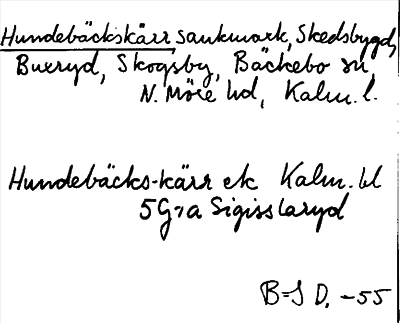 Hundebäckskärr, sankmark, Skedsbygd,
Bueryd, Skogsby, Bäckebo sn,
N. Möre hd, Kalm. l.
Hundebäcks-kärr ek Kalm. bl
5G7a Sigisslaryd
B=J D. -55